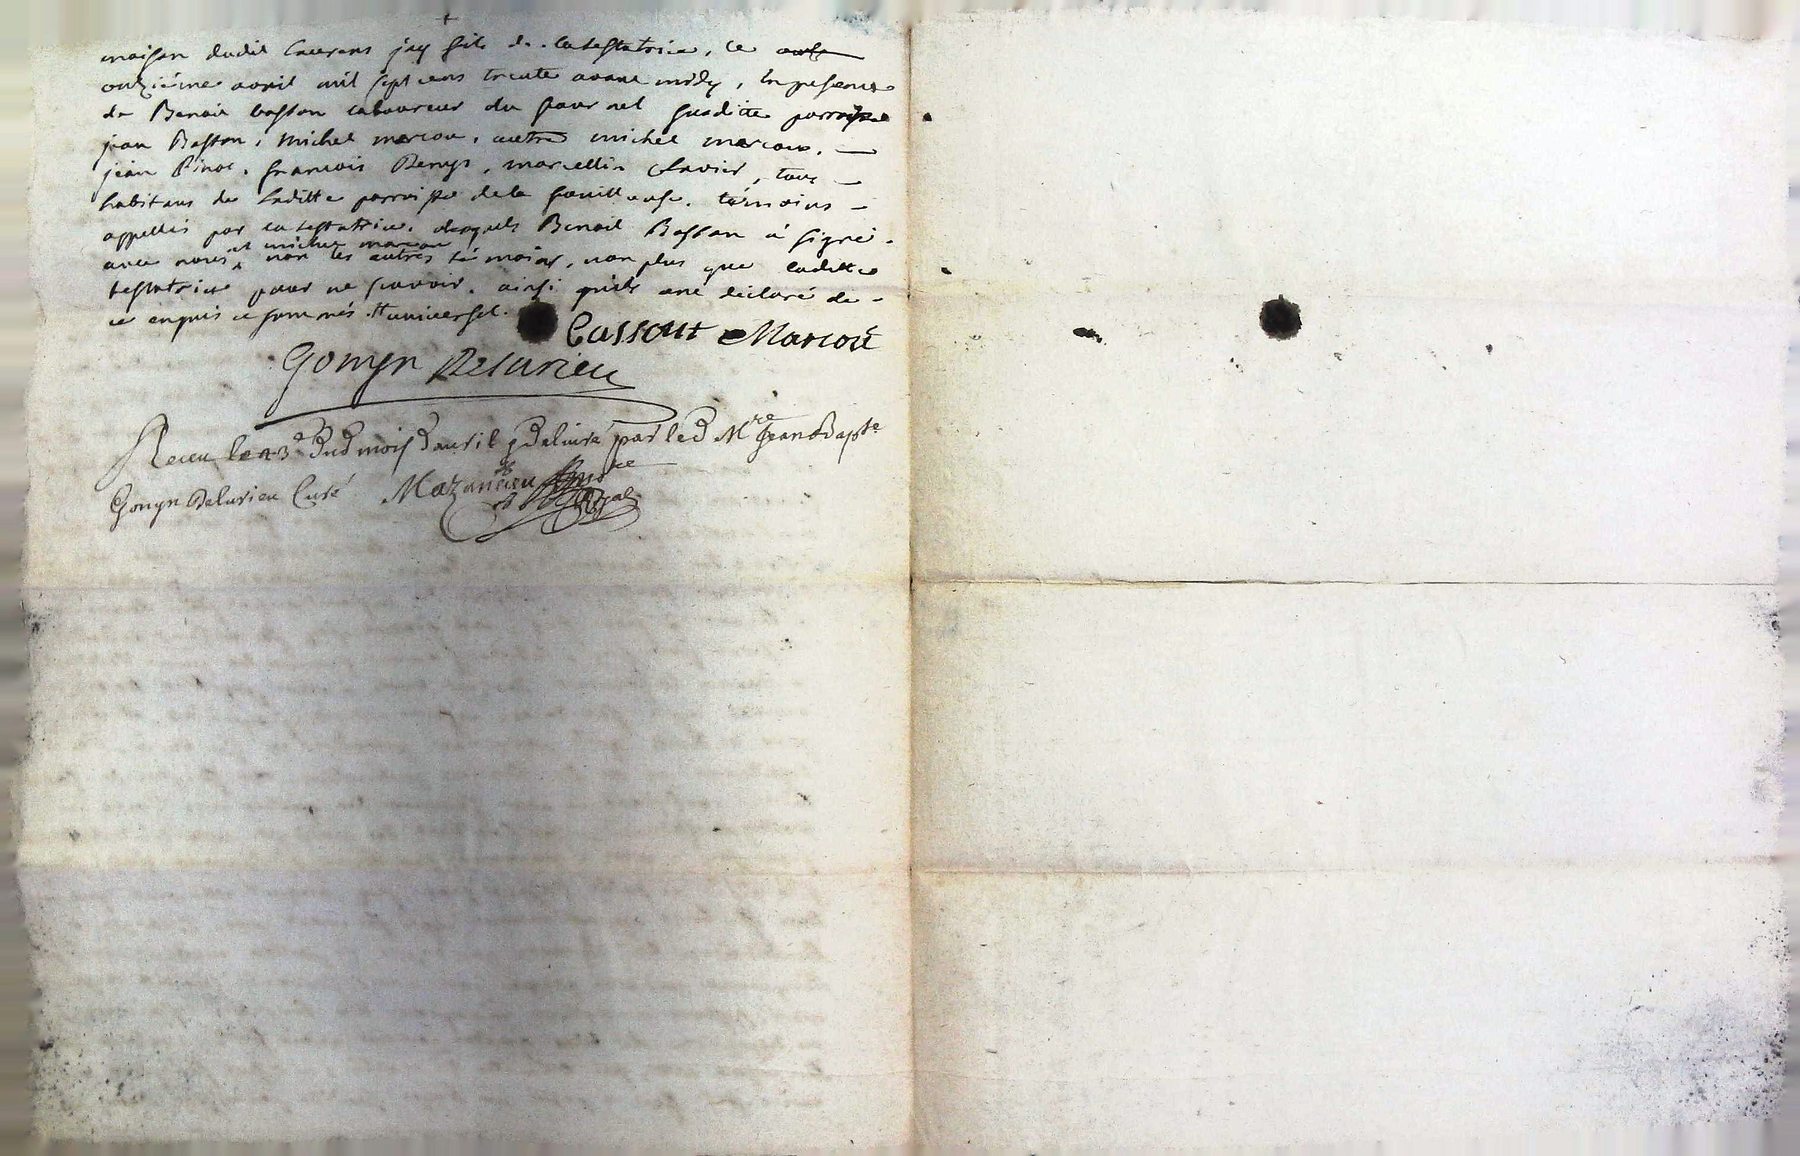 maison dudit Laurens jay fils de la testatrice, ce onze
onziéme avril mil sept cens trente avant midy, En presence
de Benoit basson laboureur du fournel susditte parroisse
jean Basson, Michel marcou, autre michel marcou,
jean Pinoc, francois Remys, marcellin Clavier, tous
habitans de laditte parroisse de la fouillouse, témoins
appellés par la testatrice, desquels Benoit Basson à signé
et michel marcou
avec nous, non les autres témoins, non plus que laditte
testatrice pour ne scavoir, ainsi quils ont déclaré de
ce enquis et sommés. universel.
Bassont Marcou
Gonyn Delurieu
Receu le 23e dud mois davril delivré par led Mre Jean Bapte
Gonyn Delurieu Curé Mazancieu